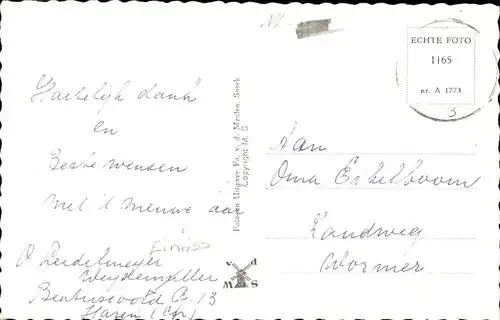 ECHTE FOTO
1165
nr. A 1773
3
Hartelijk dank
en
Beste wensen
met 't nieuwe jaar
Weydemuller
13
Haren (Gr)
Foto en Uitgave Fa. v. d. Meulen-Sneek
Copyright M. S.
v d
M S
Aan
Oma Erkelboom
Landweg
Wormer